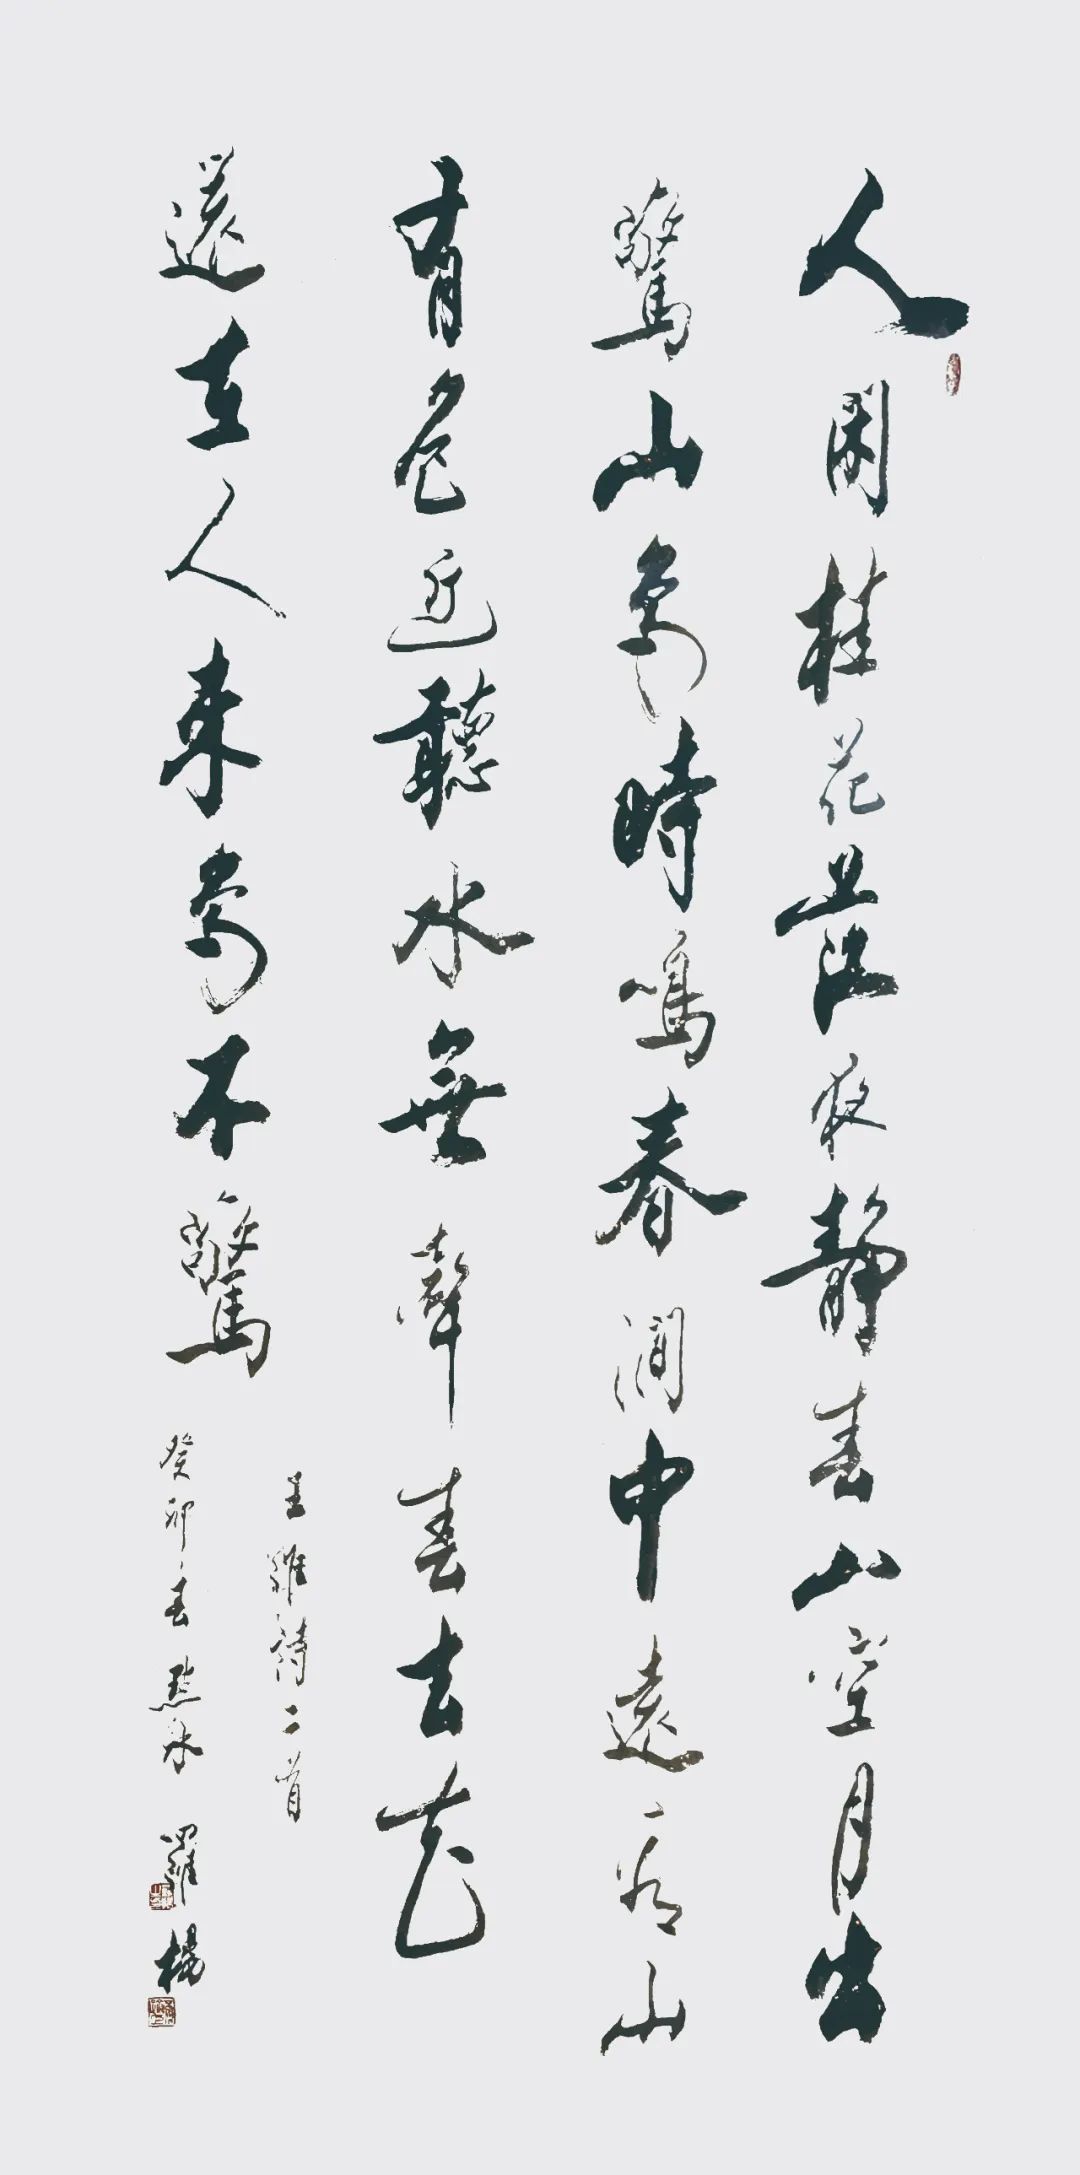 人閑桂花落夜静春山空月出
驚山鳥時鳴春澗中遠看山
有色近聽水無聲春去花
還在人来鳥不驚
王維詩二首
癸卯春 羅楊